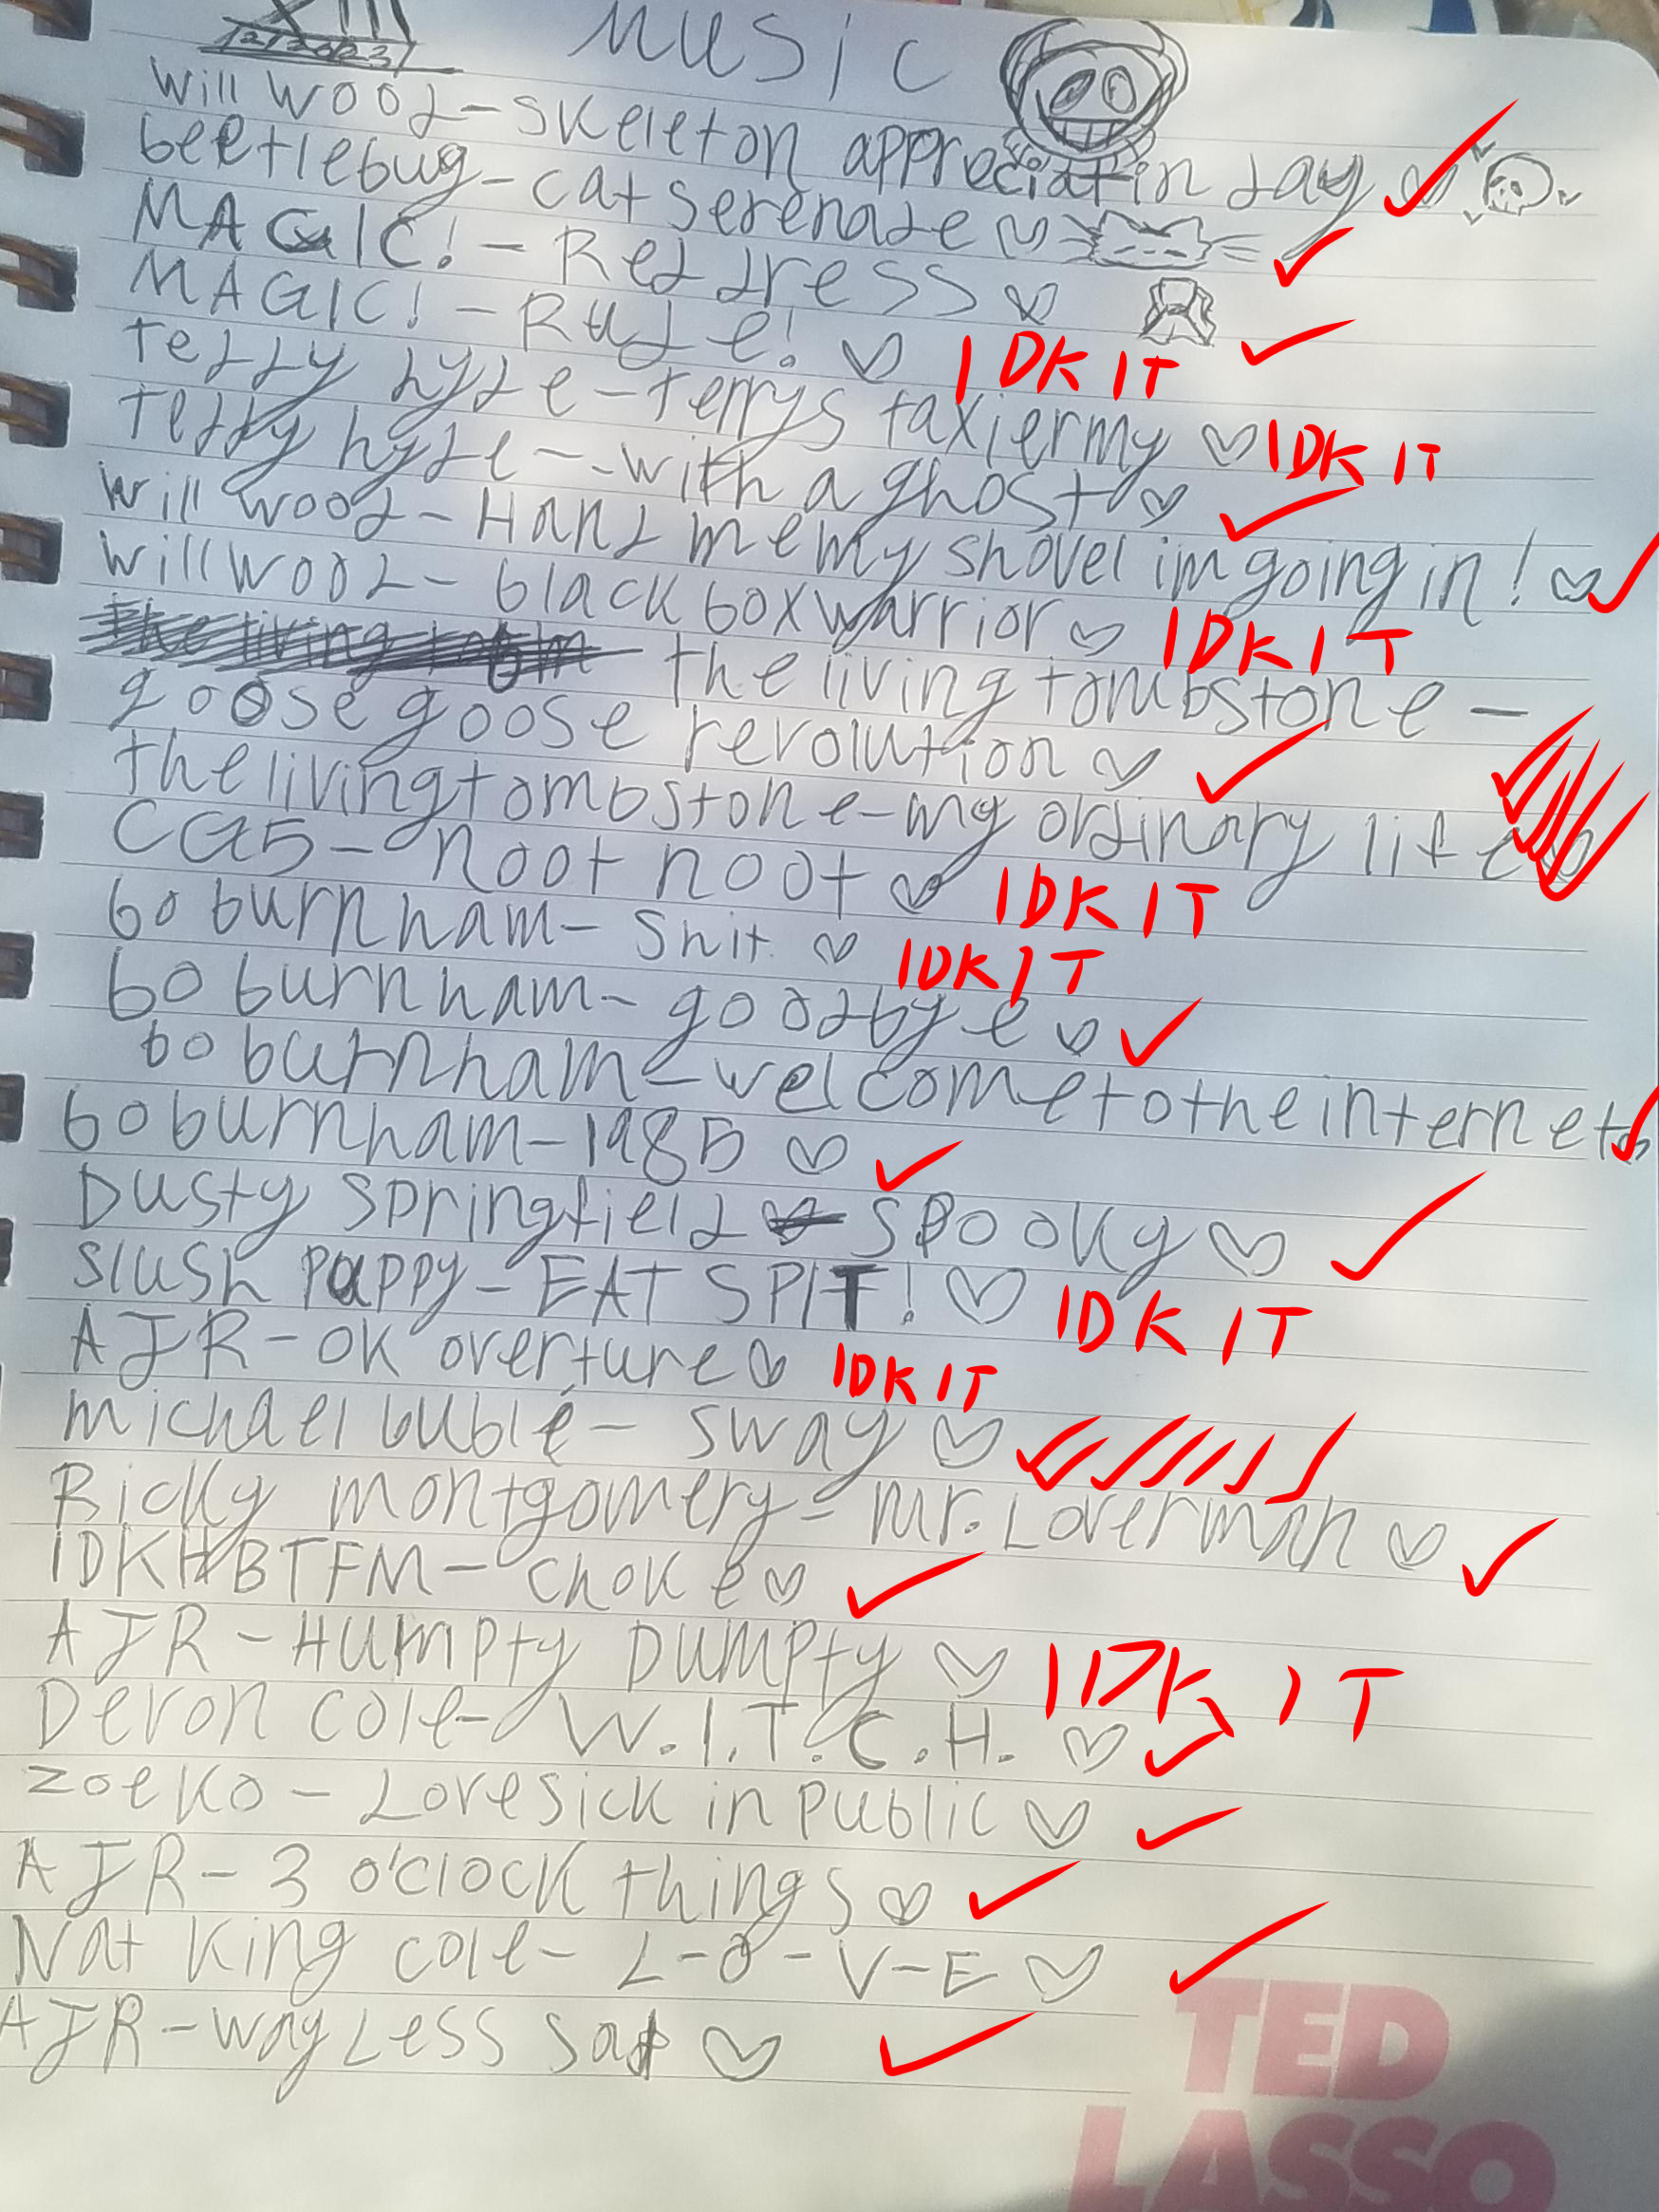 XIII
12/2023
MUSIC
will wood-skeleton appreciatin day
beetlebug-cat serenade
MAGIC!-Red dress
MAGIC!-Rude!
IDK IT
teddy hyde-terrys taxiermy
IDK IT
teddy hyde-with a ghost
will wood-Hand me my shovel im going in!
will wood-black box warrior
IDK IT
the living tombstone-
goose goose revolution
the living tombstone-my ordinary life
CG5-noot noot
IDK IT
bo burnham-Shit
IDK IT
bo burnham-goodbye
bo burnham-welcome to the internet
bo burnham-1985
Dusty springfield spooky
slush pappy-EAT SPIT!
IDK IT
AJR-OK overture
IDK IT
michael bublé-sway
Ricky montgomery-mr. Loverman
IDKHBTFM-choke
AJR-Humpty Dumpty
IDK IT
Devon cole-W.I.T.C.H.
zoeko-Lovesick in public
AJR-3 o'clock things
Nat King cole-L-O-V-E
AJR-way Less sad
TED
LASSO